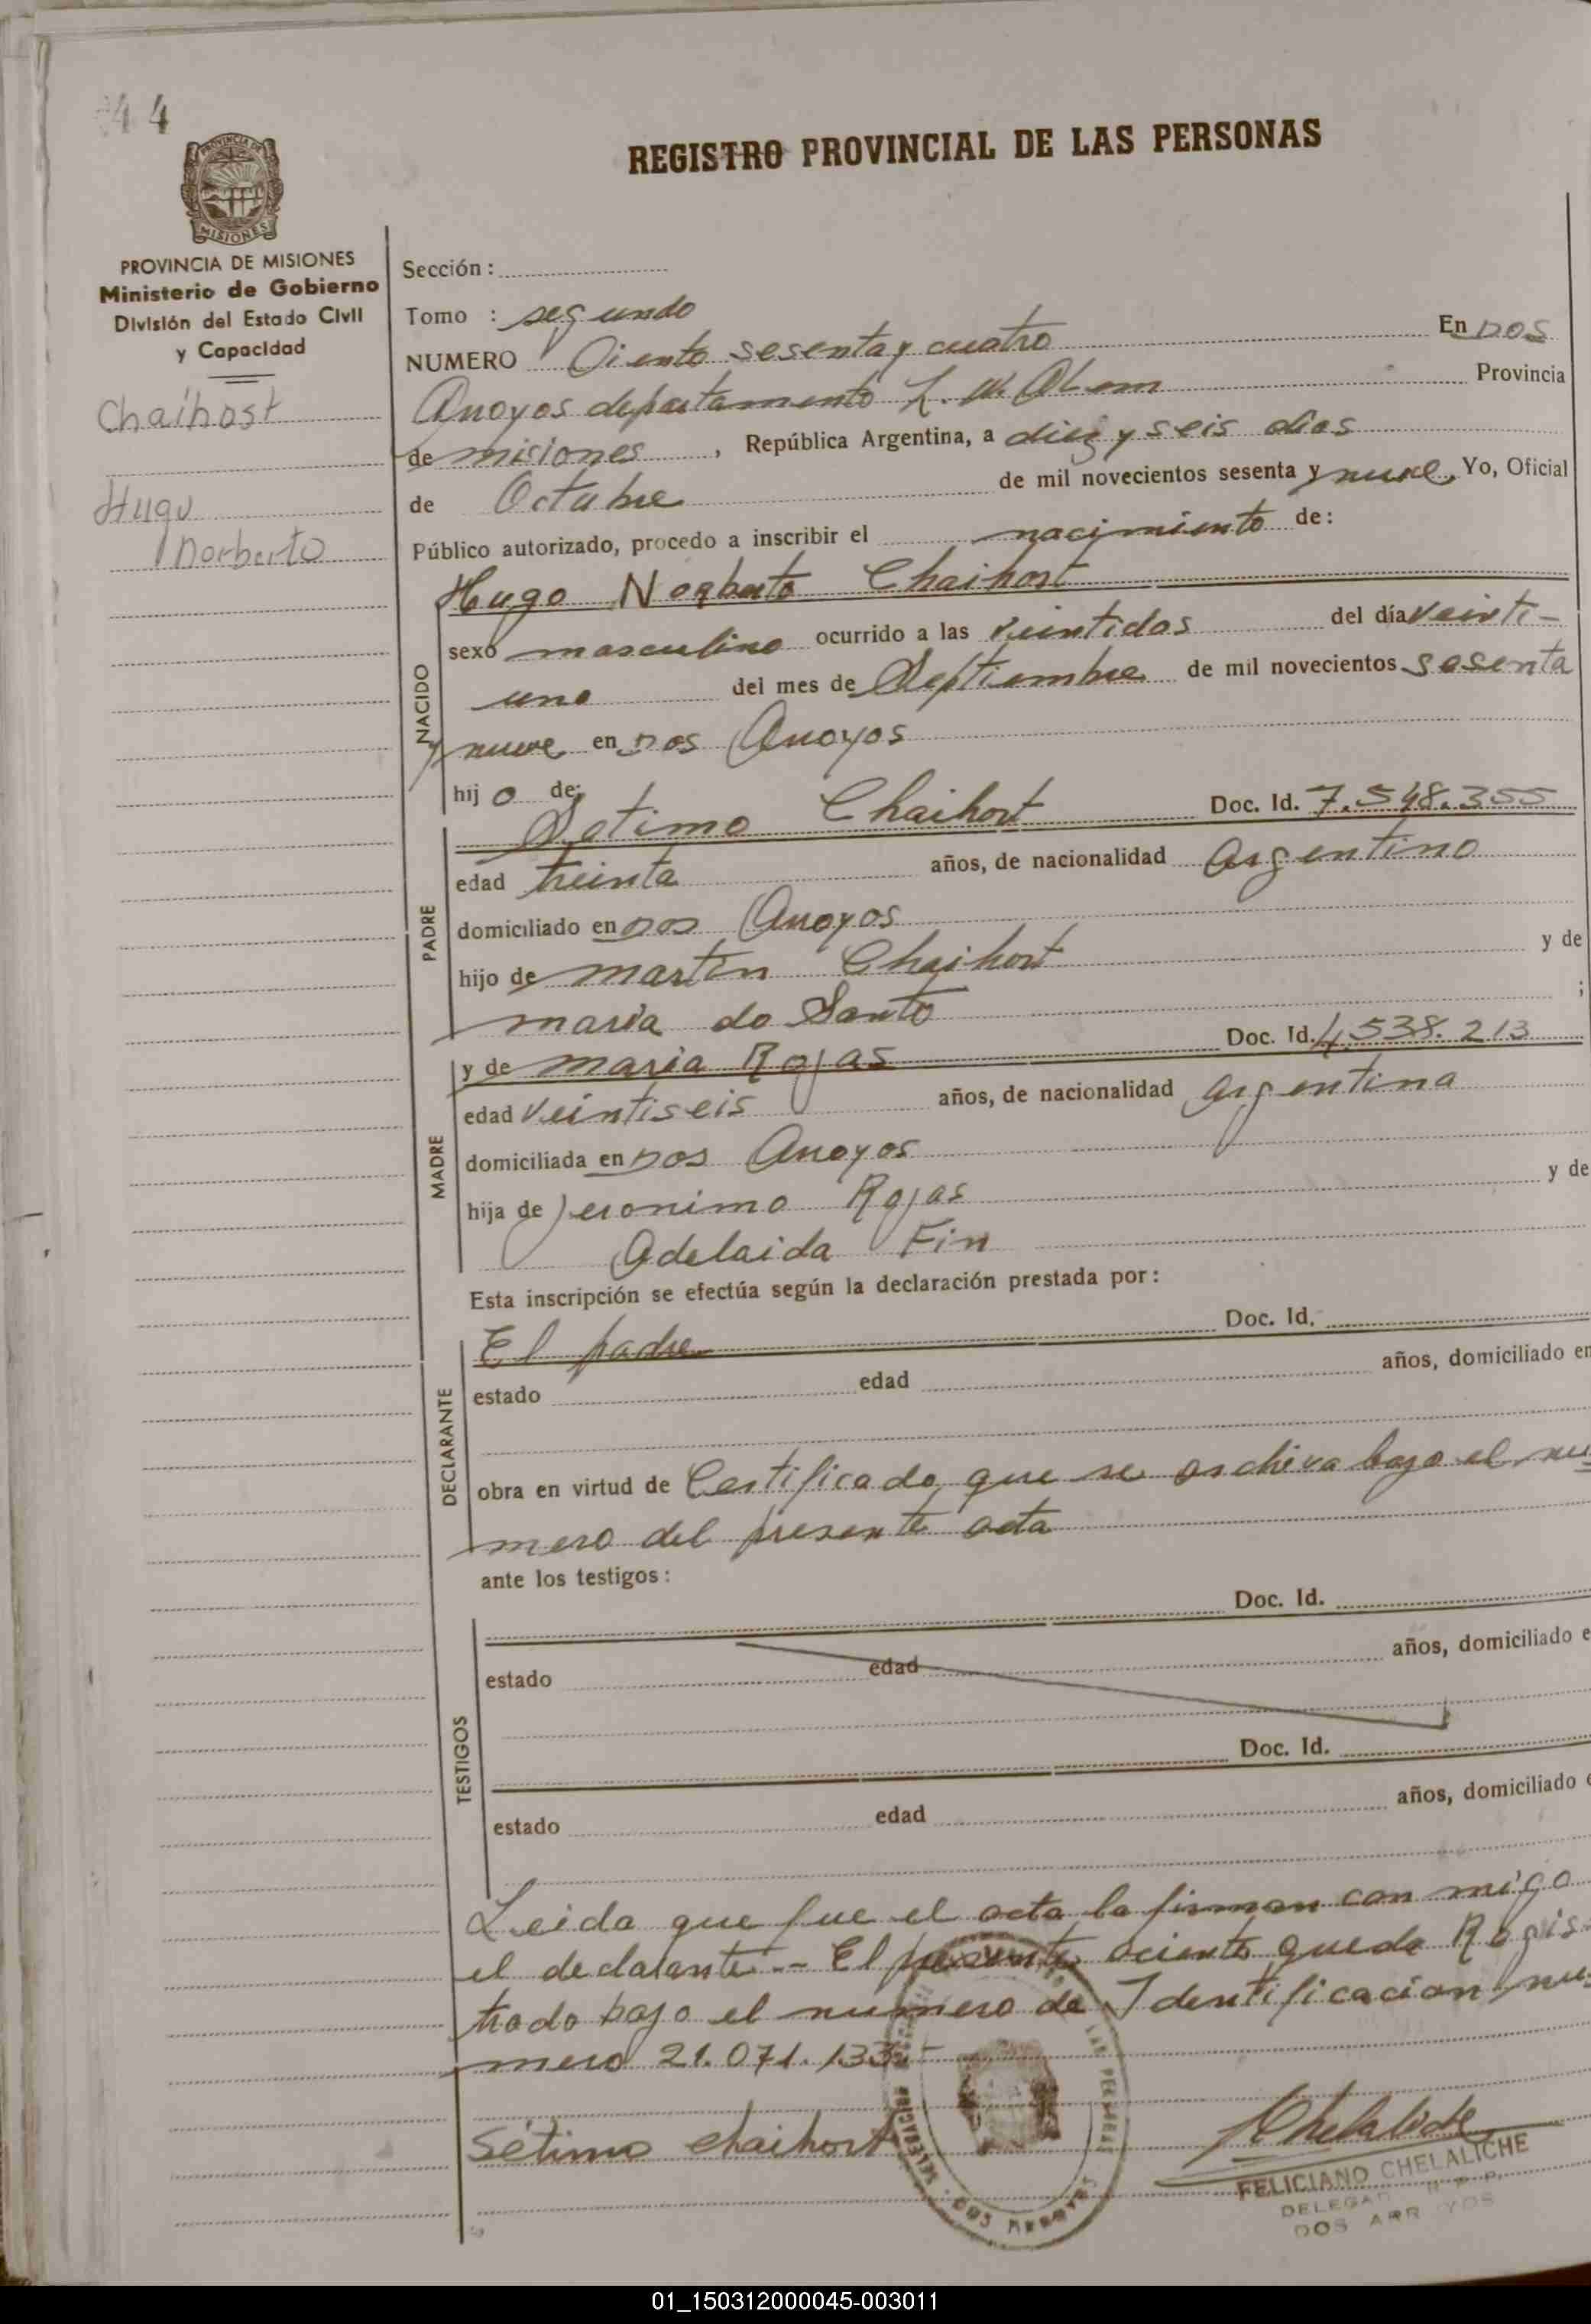 44
REGISTRO PROVINCIAL DE LAS PERSONAS
PROVINCIA DE MISIONES
PROVINCIA DE MISIONES
Ministerio de Gobierno
División del Estado Civil
y Capacidad
Chaihost
Hugo
Norberto
Sección :
Tomo : segundo
NUMERO Ciento sesenta y cuatro En Dos
Arroyos departamento L. N. Alem Provincia
de misiones , República Argentina, a diez y seis dias
de Octubre de mil novecientos sesenta y nueve Yo, Oficial
Público autorizado, procedo a inscribir el nacimiento de:
Hugo Norberto Chaihort
NACIDO
sexo masculino ocurrido a las veintidos del día veinti-
uno del mes de Septiembre de mil novecientos sesenta
y nueve en Dos Arroyos
hij o de:
Setimo Chaihort Doc. Id. 7.548.355
PADRE
edad treinta años, de nacionalidad Argentino
domiciliado en Dos Arroyos
hijo de martin Chaihort y de
maria do Santo ;
y de maria Rojas Doc. Id. 4.538.213
MADRE
edad veintiseis años, de nacionalidad argentina
domiciliada en Dos Arroyos
hija de Jeronimo Rojas y de
Adelaida Fin
Esta inscripción se efectúa según la declaración prestada por:
El padre Doc. Id.
DECLARANTE
estado edad años, domiciliado en
obra en virtud de Certificado que se archiva bajo el nu
mero del presente acta
ante los testigos:
Doc. Id.
TESTIGOS
estado edad años, domiciliado e
Doc. Id.
estado edad años, domiciliado e
Leida que fue el acta la firman con migo
el declarante.- El presente aciento queda Regis
trado bajo el numero de Identificacion nu-
mero 21.071.133.-
Sétimo chaihort Chelaliche
FELICIANO CHELALICHE
DELEGAD R. P. P.
DOS ARROYOS
LAS PERSONAS
DOS ARROYOS
01_150312000045-003011